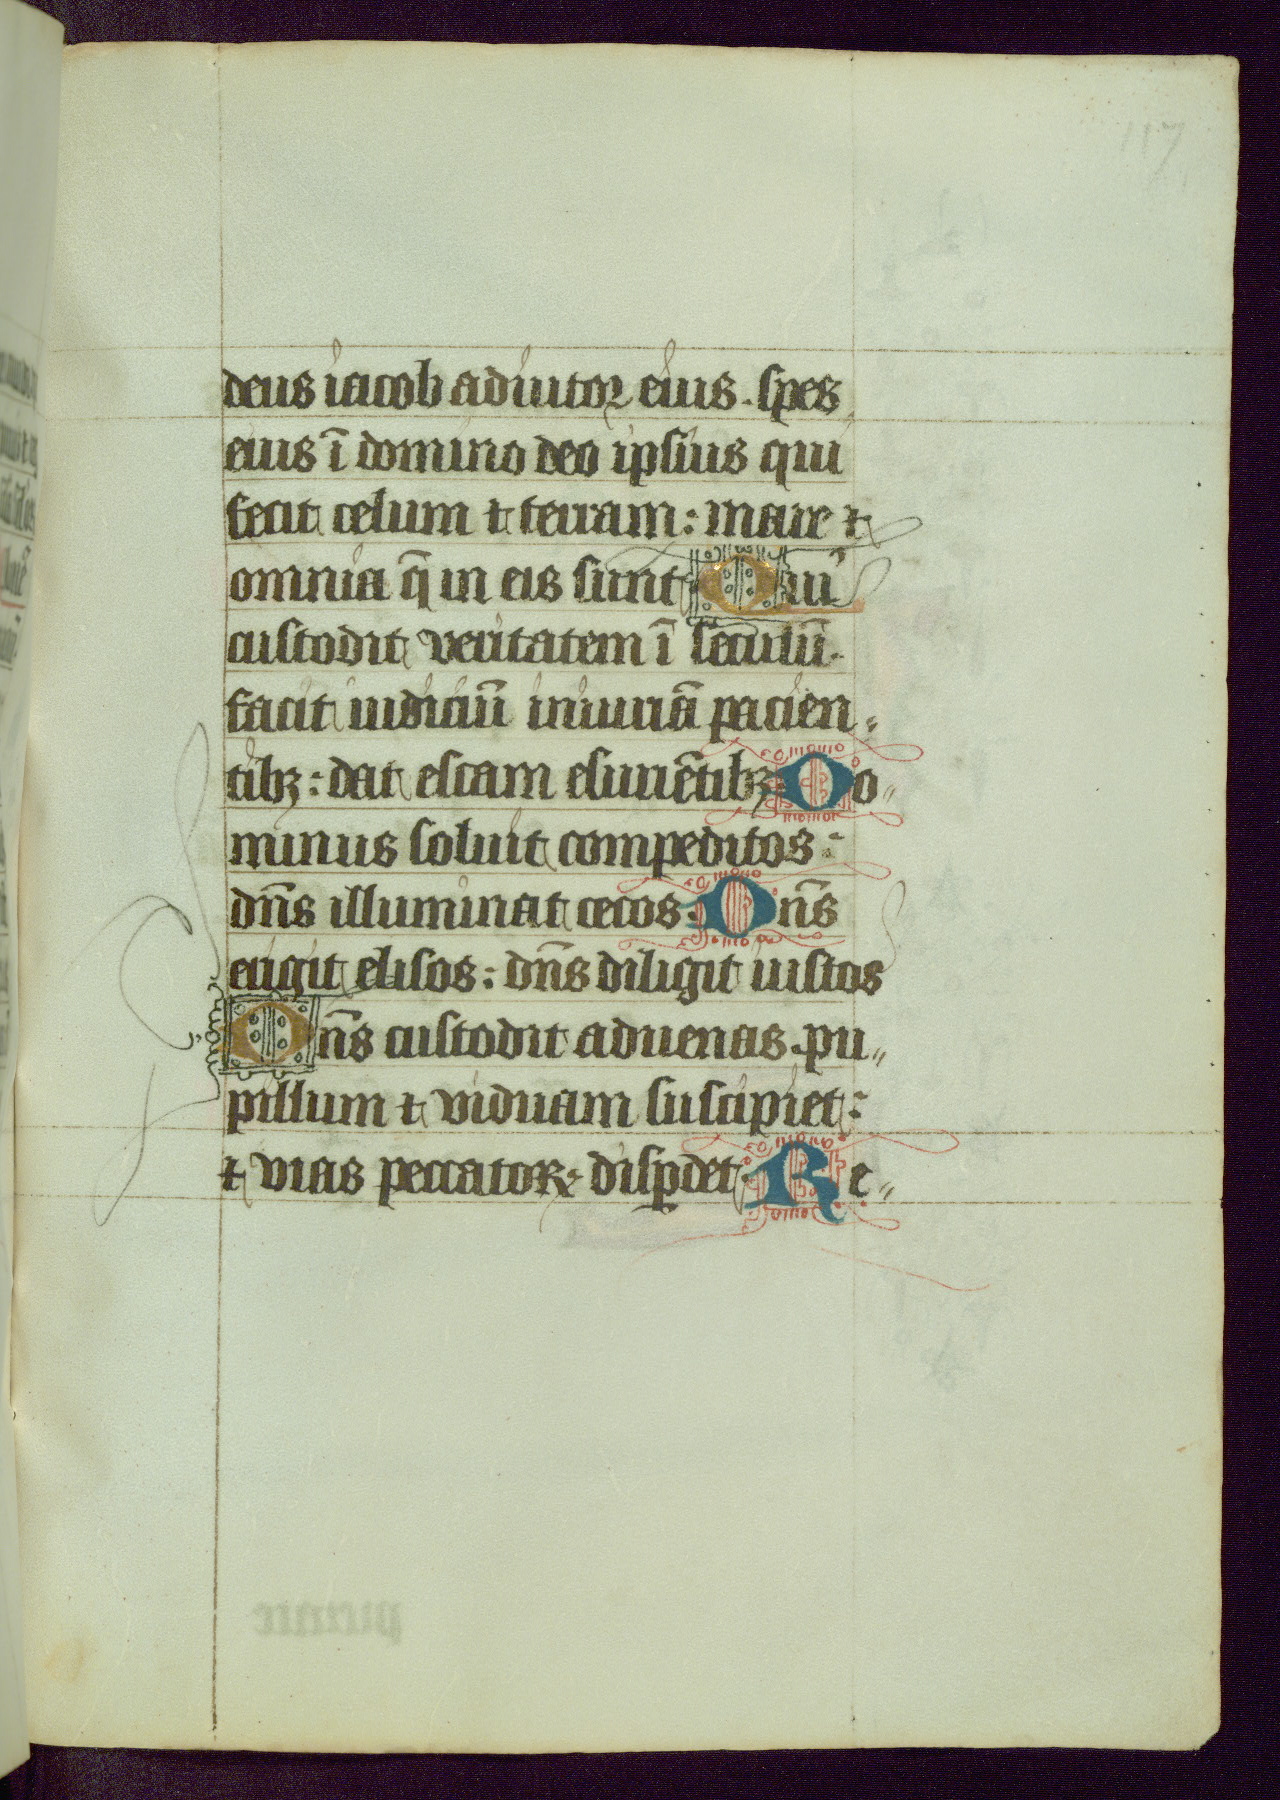 117
deus iacob adiutor eius. spes
eius ī domino deo ipsius qui
fecit celum ⁊ terram: mare ⁊
omnia q̄ in eis sunt Qui
custodit veritatem ī seculū.
facit iudiciū iniuriā pacien〃
tibꝫ: dat escam esuriētibꝫ. Do〃
minus soluit compeditos:
dn̄s illuminat cecos. Dn̄s
erigit elisos: dn̄s diligit iustos
Dn̄s custodit aduenas. pu〃
pillum ⁊ viduam suscipiet:
⁊ vias peccatoꝝ disꝑdet. Re〃